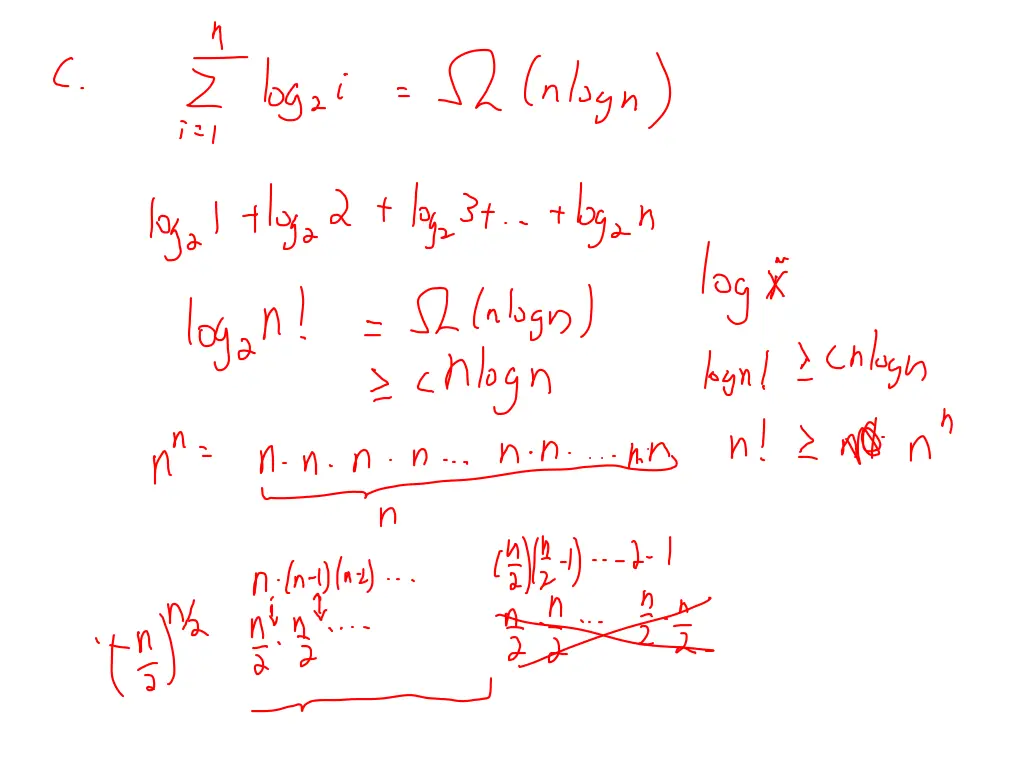 C. \sum_{i=1}^{n} log₂ i = Ω(n log n)
log₂ 1 + log₂ 2 + log₂ 3 + ... + log₂ n
log x
log₂ n! = Ω(n log n)
≥ c n log n
log n! ≥ c n log n
nⁿ = n · n · n · n ... n · n · ... n · n
n
n! ≥ nⁿ
n · (n-1)(n-2) ... (n/2)(n/2 - 1) ... 2 · 1
(n/2)^{n/2} n/2 · n/2 · ... n/2 n/2 ... n/2 · n/2